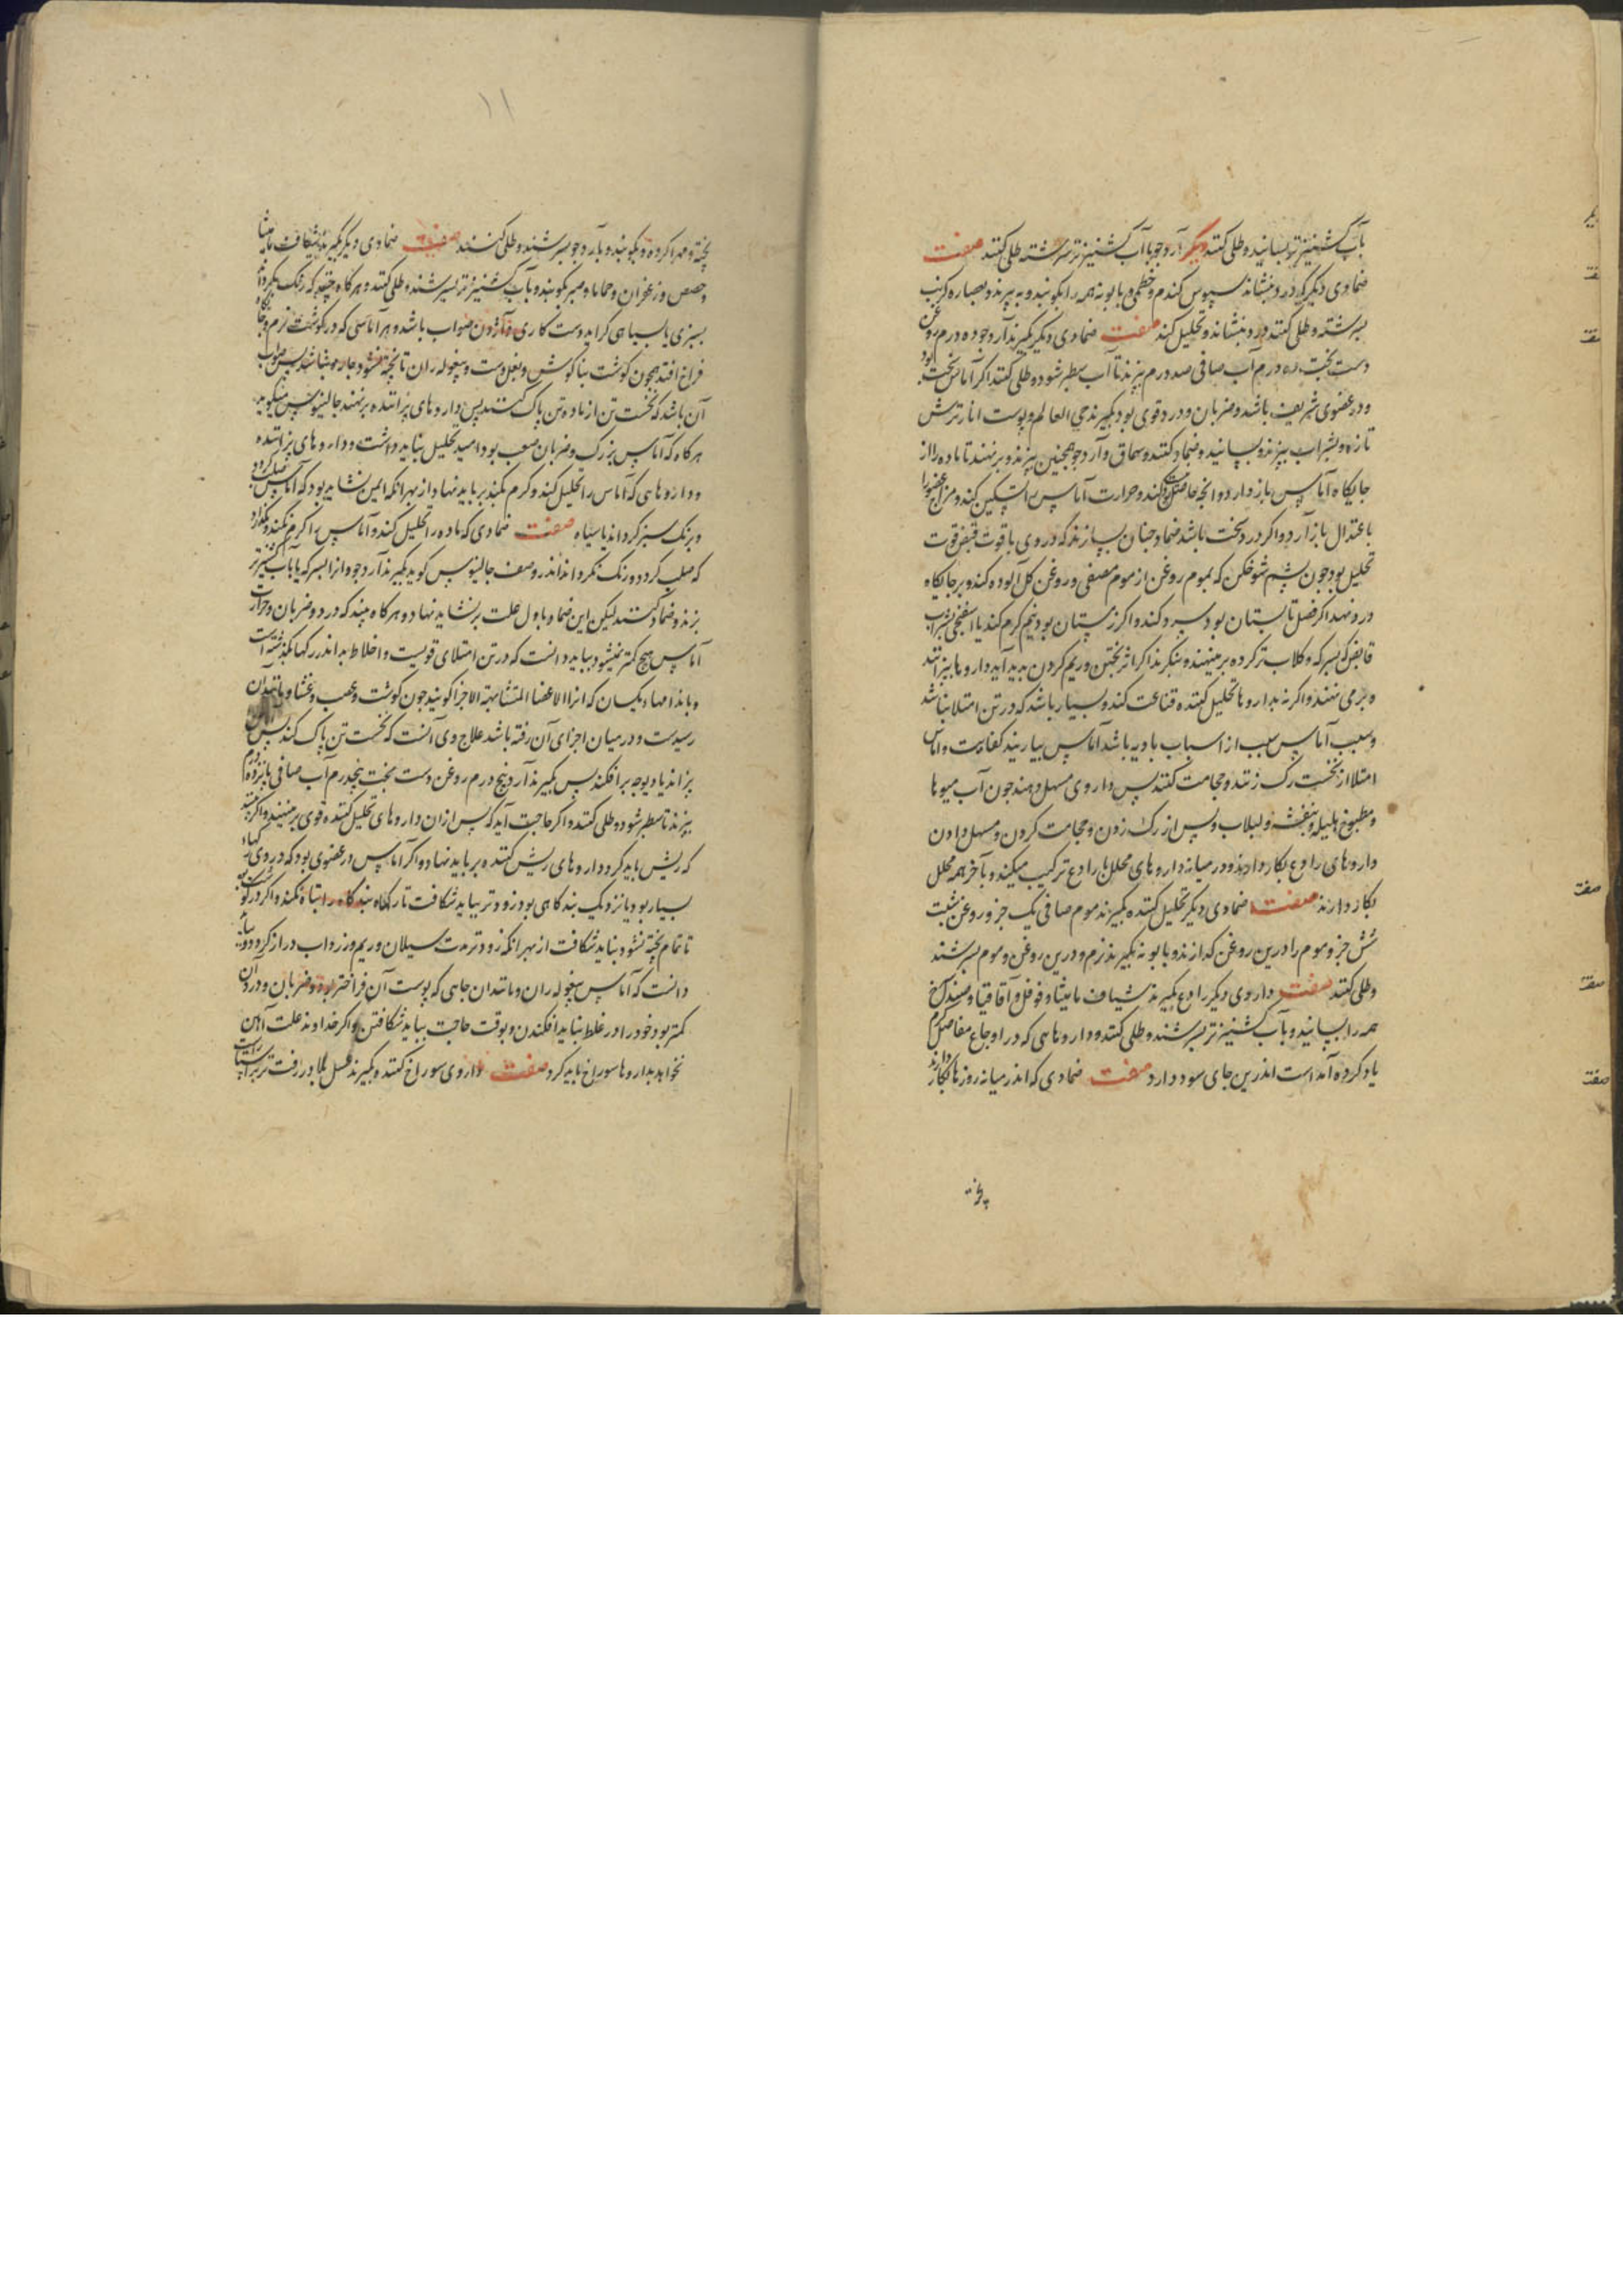 باب کشنیز تر بسایند و طلی کنند دیگر آرد جو باآب کشنیز تر سرشته طلی کنند صفت
ضمادی دیگر که درد بنشاند سپوس کندم و خطمی و بابونه همه را بکوبند و به پزند و بعصاره کرنب
بسرشته و طلی کنند درد بنشاند و تحلیل کند صفت ضمادی دیگر بکیرند آرد جو ده درم روغن
دست بخت ده درم آب صافی صد درم بپزند تا آب سطبر شود و طلی کنند اکر آماس سخت بود
و در عضوی شریف باشد و ضربان و درد قوی بود بکیرند حی العالم و پوست انار ترش
تازه و بشراب بپزند و بسایند و ضماد کنند و سماق و آرد جو همچنین بپزند و برنهند تا ماده را از
جایکاه آماس باز دارد و انچه حاصل کند و حرارت آماس را تسکین کند و مزاج عضو را
باعتدال باز آرد و اکر درد سخت باشد ضماد چنان سازند که در وی با قوت قبض قوت
تحلیل بود چون پشم شوخکن که بموم روغن از موم مصفی و روغن کل آلوده کند و بر جایکاه
درد نهد اکر فصل تابستان بود سرد کنند و اکر زمستان بود نیم کرم کند یا اسفنجی بشراب
قابض که بسرکه و کلاب تر کرده برمینهند و بنکرند اکر اثر پختن و ریم کردن پدید آید داروها بپزانند
و برمی نهند و اکر نه بداروها تحلیل کننده قناعت کند و بسیار باشد که در تن امتلا نباشد
و سبب آماس سبب از اسباب بادیه باشد آماس بیارند کفایت و اماس
امتلا از نخست رک زنند و حجامت کنند پس داروی مسهل دهند چون آب میوها
و مطبوخ هلیله و بنفشه و لبلاب و پس از رک زدن و حجامت کردن و مسهل دادن
داروهای رادع بکار دارند و در میانه داروهای محلل با رادع ترکیب میکنند و بآخر همه محلل
بکار دارند صفت ضمادی دیکر تحلیل کننده بکیرند موم صافی یک جزو روغن شبت
شش جزو موم را درین روغن کدازند و بابونه بکیرند نرم و درین روغن و موم بسرشند
و طلی کنند صفت داروی دیکر رادع بکیرند شیاف مامیثا و فوفل و آقاقیا و صندل سرخ
همه را بسایند و باب کشنیز تر بسرشند و طلی کنند و داروهایی که در اوجاع مفاصل کرم
یاد کرده آمداست اندرین جای سود دارد صفت ضمادی که اندر میانه روزها بکار دارند
پخته
۱۱
پخته و مهرا کرده و بکوبند و بآرد جو بسرشند و طلی کنند صفت ضمادی دیکر بکیرند شیاف مامیثا
و حضض و زعفران و حماما و صبر بکوبند و باب کشنیز تر بسرشند و طلی کنند و هرکاه که رنک
بسبزی یا سیاهی کراید دست کاری و آژدن صواب باشد و هر آماسی که در کوشت نرم و جای
فراخ افتد چون کوشت بنا کوش و بغل دست و پیغوله ران تا پخته نشود چاره نباشد پس صواب
آن باشد که نخست تن از ماده تن پاک کنند پس داروهای پزاننده برنهند جالینوس میکوید
هرکاه که آماس بزرک و ضربان صعب بود امید تحلیل نباید داشت و داروهای پزاننده
و داروهایی که آماس را تحلیل کند و کرم نکند برباید نهاد از بهر انکه ایمن نشاید بود که آماس صلب کردد
و برنک سبز کرداند یا سیاه صفت ضمادی که ماده را تحلیل کند و آماس را کرم نکند و نکذارد
که صلب کردد و رنک نکرداند اندر وصف جالینوس کوید بکیرند آرد جو و انرا بسرکه یا باب کشنیز تر
بپزند و ضماد کنند لیکن این ضماد باول علت برنشاید نهاد و هرکاه بیند که درد و ضربان و حرارت
آماس هیچ کمتر نمیشود بباید دانست که در تن امتلای قویست و اخلاط بد اندر رکها بکذشته است
و باندامهاء یکسان که انرا الاعضا المتشابهة الاجزا کویند چون کوشت و عصب و غشا و مانند آن
رسیدست و در میان اجزای آن رفته باشد علاج وی آنست که نخست تن پاک کند پس
پزاند یا دیوچه برافکند پس بکیرند آرد پنج درم روغن دست بخت پنجدرم آب صافی پانزده درم
بپزند تا سطبر شود و طلی کنند و اکر حاجت آید که پس ازان داروهای تحلیل کننده قوی برنهند و اکر بیند
که ریش باید کرد داروهای ریش کننده برباید نهاد و اکر آماس در عضوی بود که در وی رکهاء
بسیار بود یا نزدیک بندکاهی بود زودتر بباید شکافت تا رکها و بندکاه را تباه نکند و اکر در کوشت بود
تا تمام پخته نشود نباید شکافت از بهر انکه زودتر مدت سیلان و ریم و زرداب دراز کردد و بباید
دانست که آماس پیغوله ران و مانند ان جایی که پوست آن فراختر بود و ضربان و درد آن
کمتر بود خود را در غلط نباید افکندن و بوقت حاجت بباید شکافتن و اکر خداوند علت آهن
نخواهد بداروها سوراخ باید کرد صفت داروی سوراخ کننده بکیرند عسل بلادر زفت تر برابر